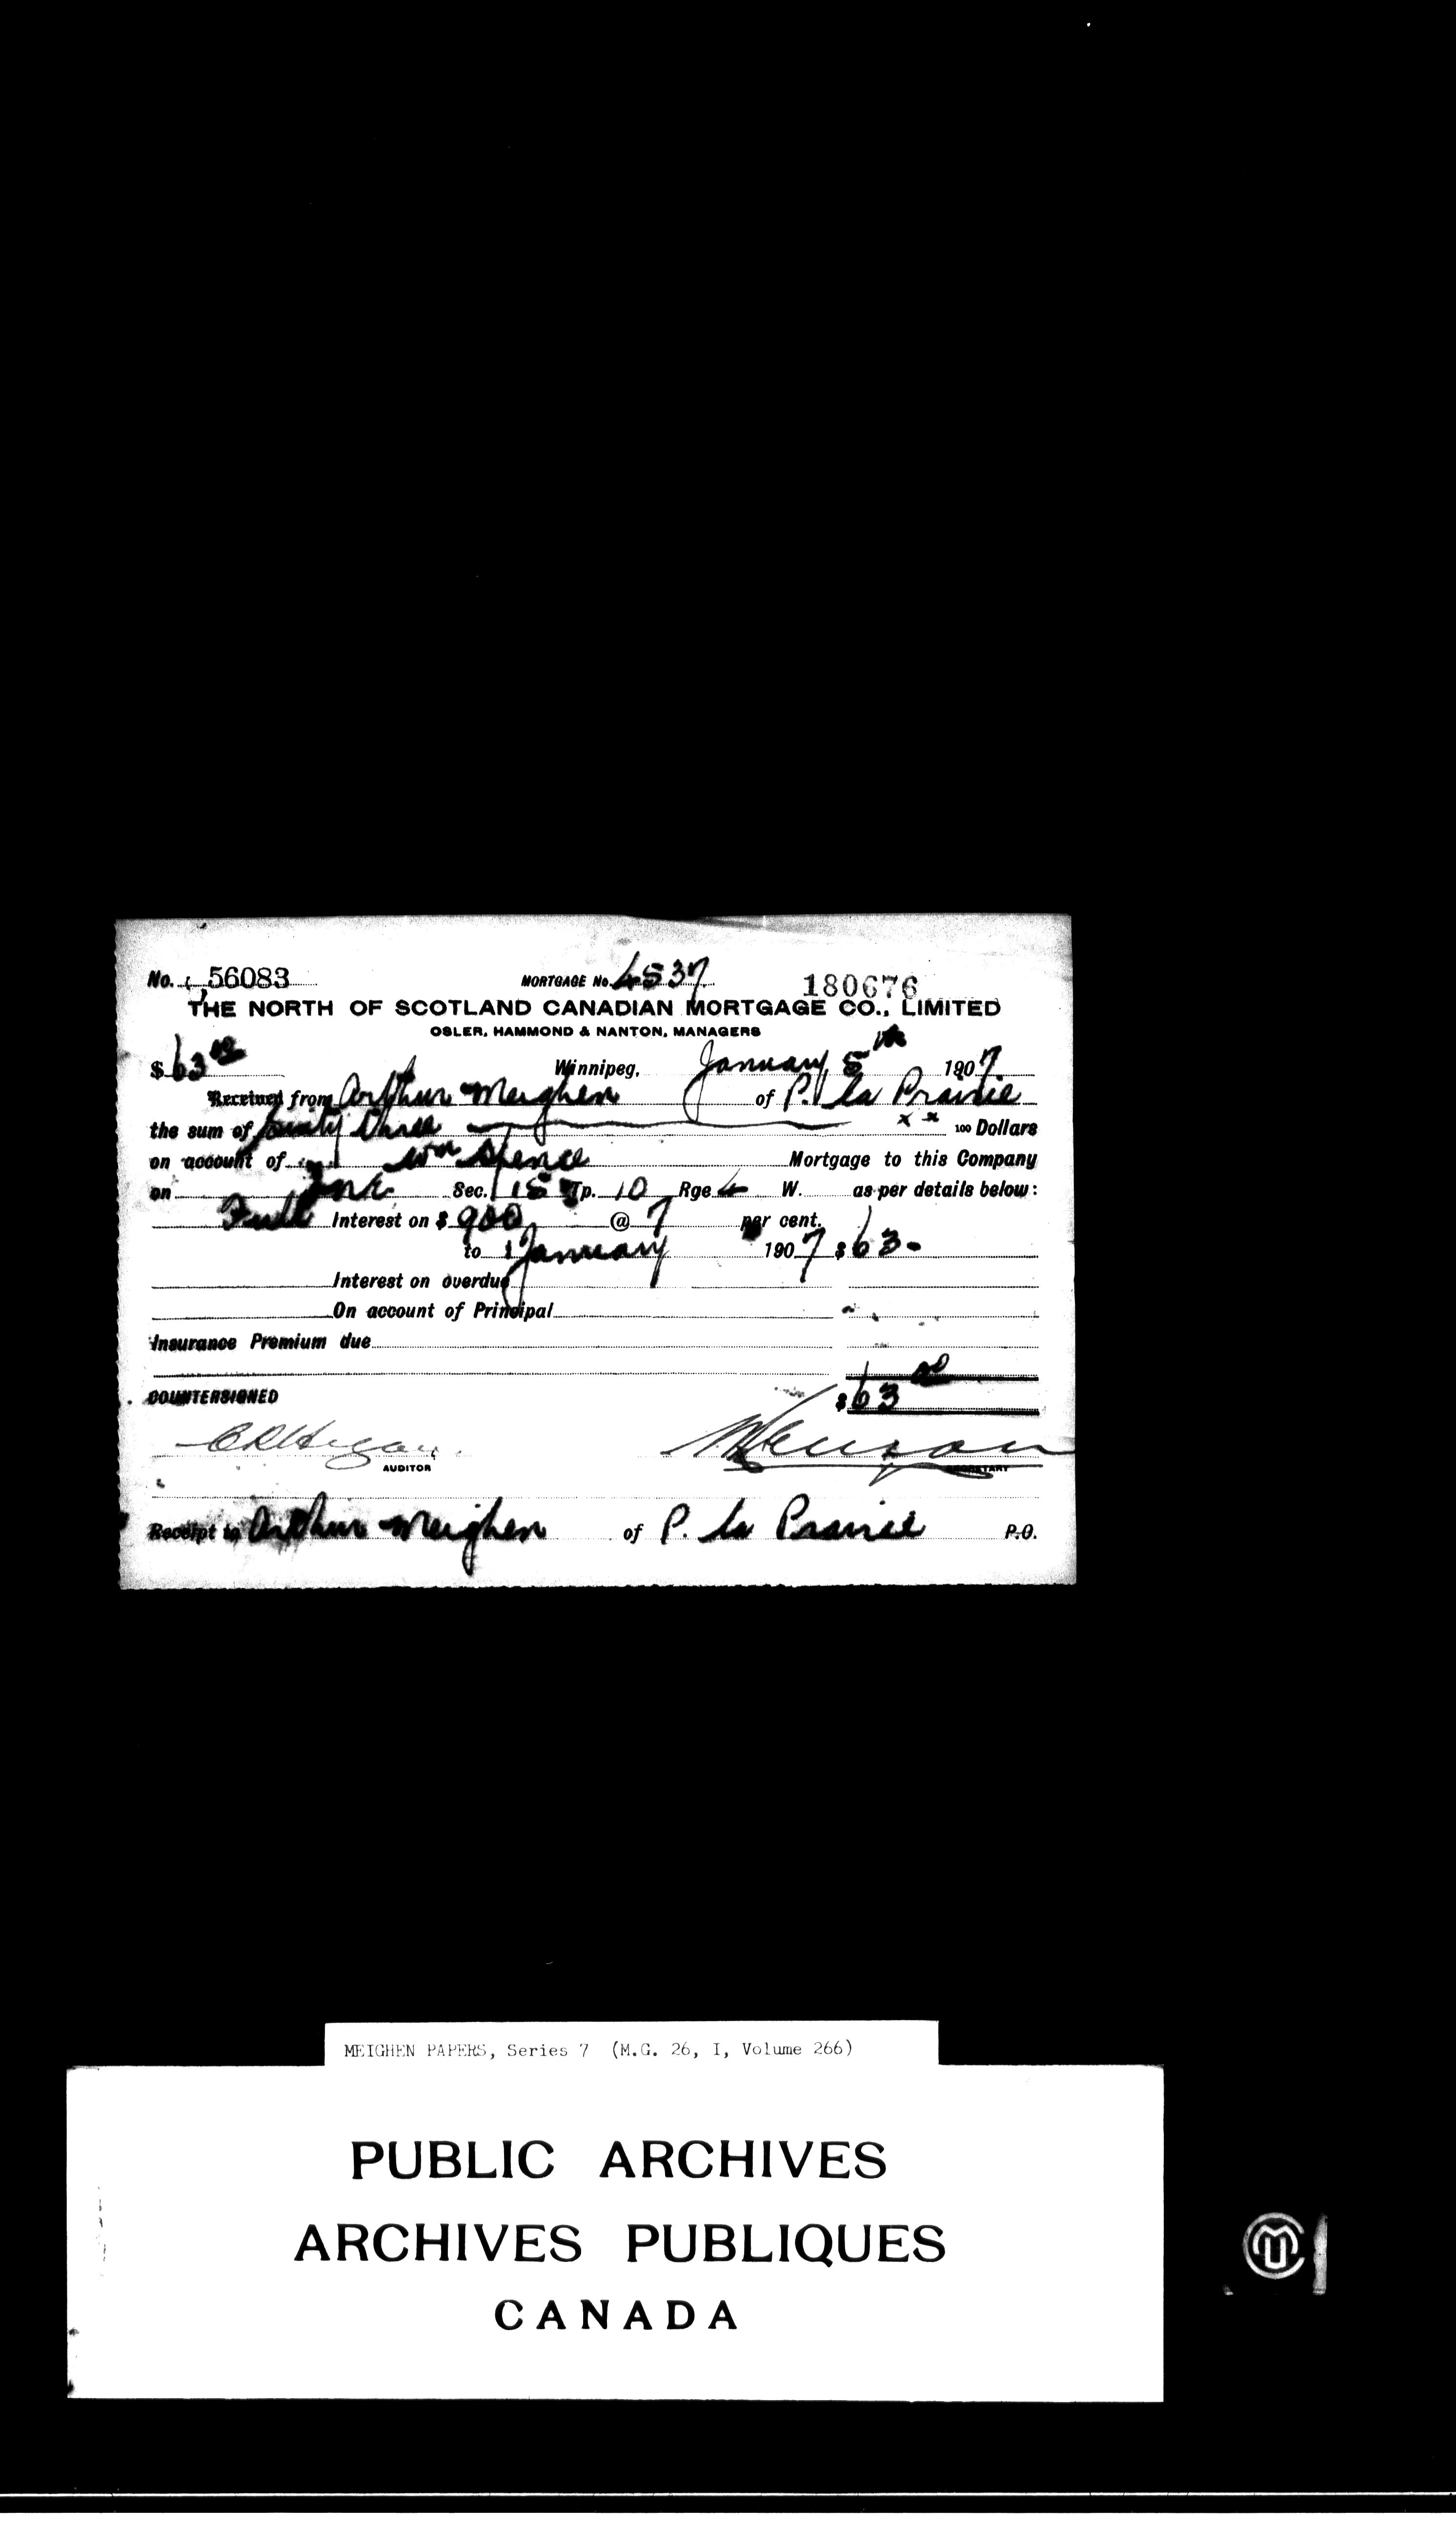 No. 56083 MORTGAGE No. 4537 180676
THE NORTH OF SCOTLAND CANADIAN MORTGAGE CO., LIMITED
OSLER, HAMMOND & NANTON, MANAGERS
$ 63 00 Winnipeg, January 5th 1907
Received from Arthur Meighen of P. la Prairie
the sum of Sixty three x x 100 Dollars
on account of Wm Spence Mortgage to this Company
on Sec. 15 Tp. 10 Rge 4 W. as per details below:
Full Interest on $ 900 @ 7 per cent.
to 1 January 1907 $ 63 -
Interest on overdue
On account of Principal
Insurance Premium due
$ 63 00
COUNTERSIGNED
AUDITOR SECRETARY
Receipt to Arthur Meighen of P. la Prairie P.O.
MEIGHEN PAPERS, Series 7 (M.G. 26, I, Volume 266)
PUBLIC ARCHIVES
ARCHIVES PUBLIQUES
CANADA